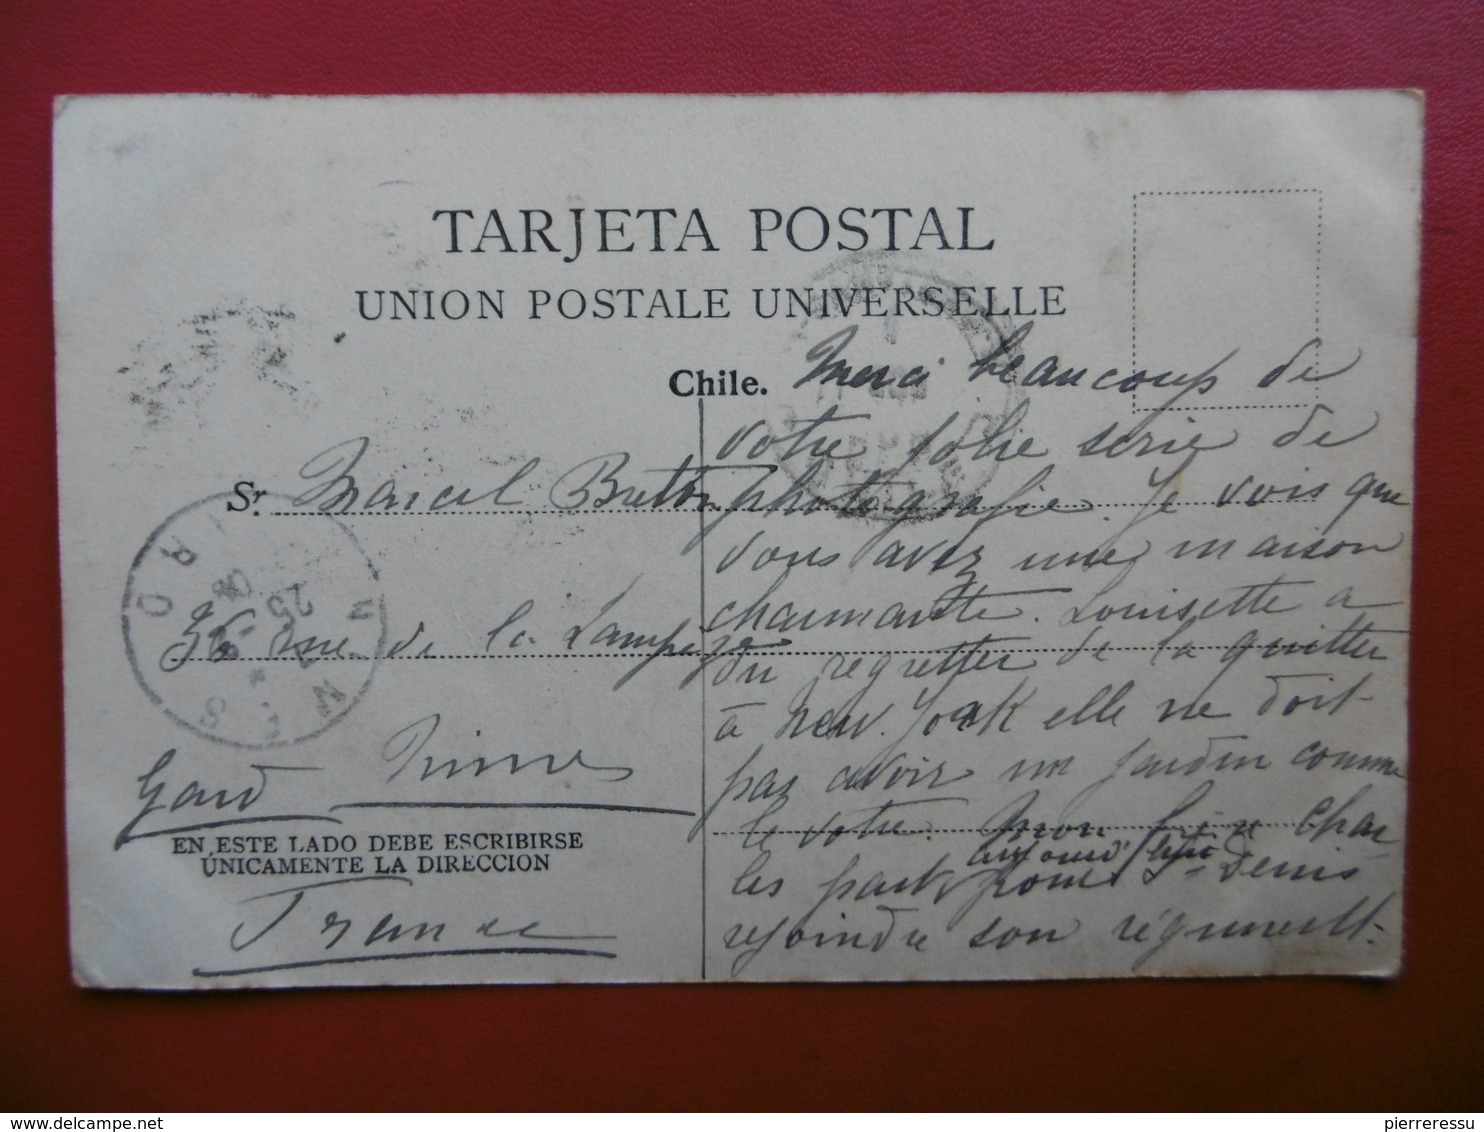 TARJETA POSTAL
UNION POSTALE UNIVERSELLE
Chile.
Merci beaucoup de
votre jolie serie de
photografie. Je vois que
vous avez une maison
charmante. Louisette a
du regretter de la quitter
à New. York elle ne doit
pas avoir un jardin comme
le votre. Mon bien Char
les part aujourd'hui pour St Denis
rejoindre son régiment.
Sr. Marcel Breton
36 rue de la Lampèze
Nimes
Gard
EN ESTE LADO DEBE ESCRIBIRSE
ÚNICAMENTE LA DIRECCION
France
NIMES
25
delcampe.net
pierreressu